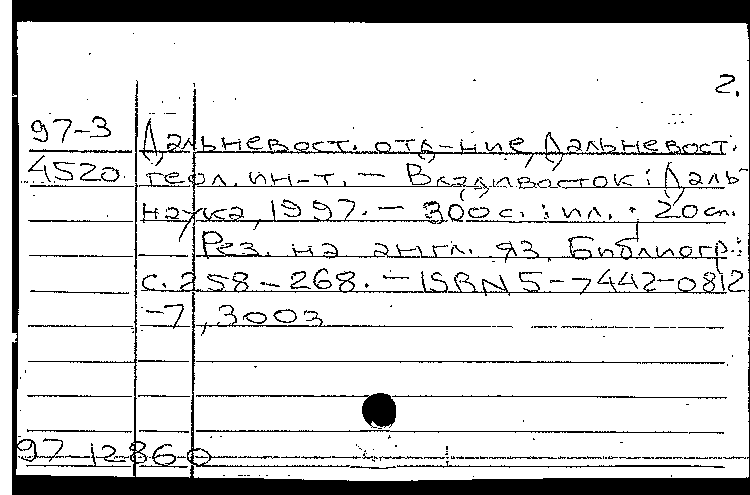 2.
97-3 Дальневост. отд-ние, Дальневост.
4520 геол. ин-т. — Владивосток : Даль-
наука, 1997. — 300 с. : ил. ; 20 см.
Рез. на англ. яз. Библиогр.:
с. 258-268. — ISBN 5-7442-0812
-7, 300э
97-12860